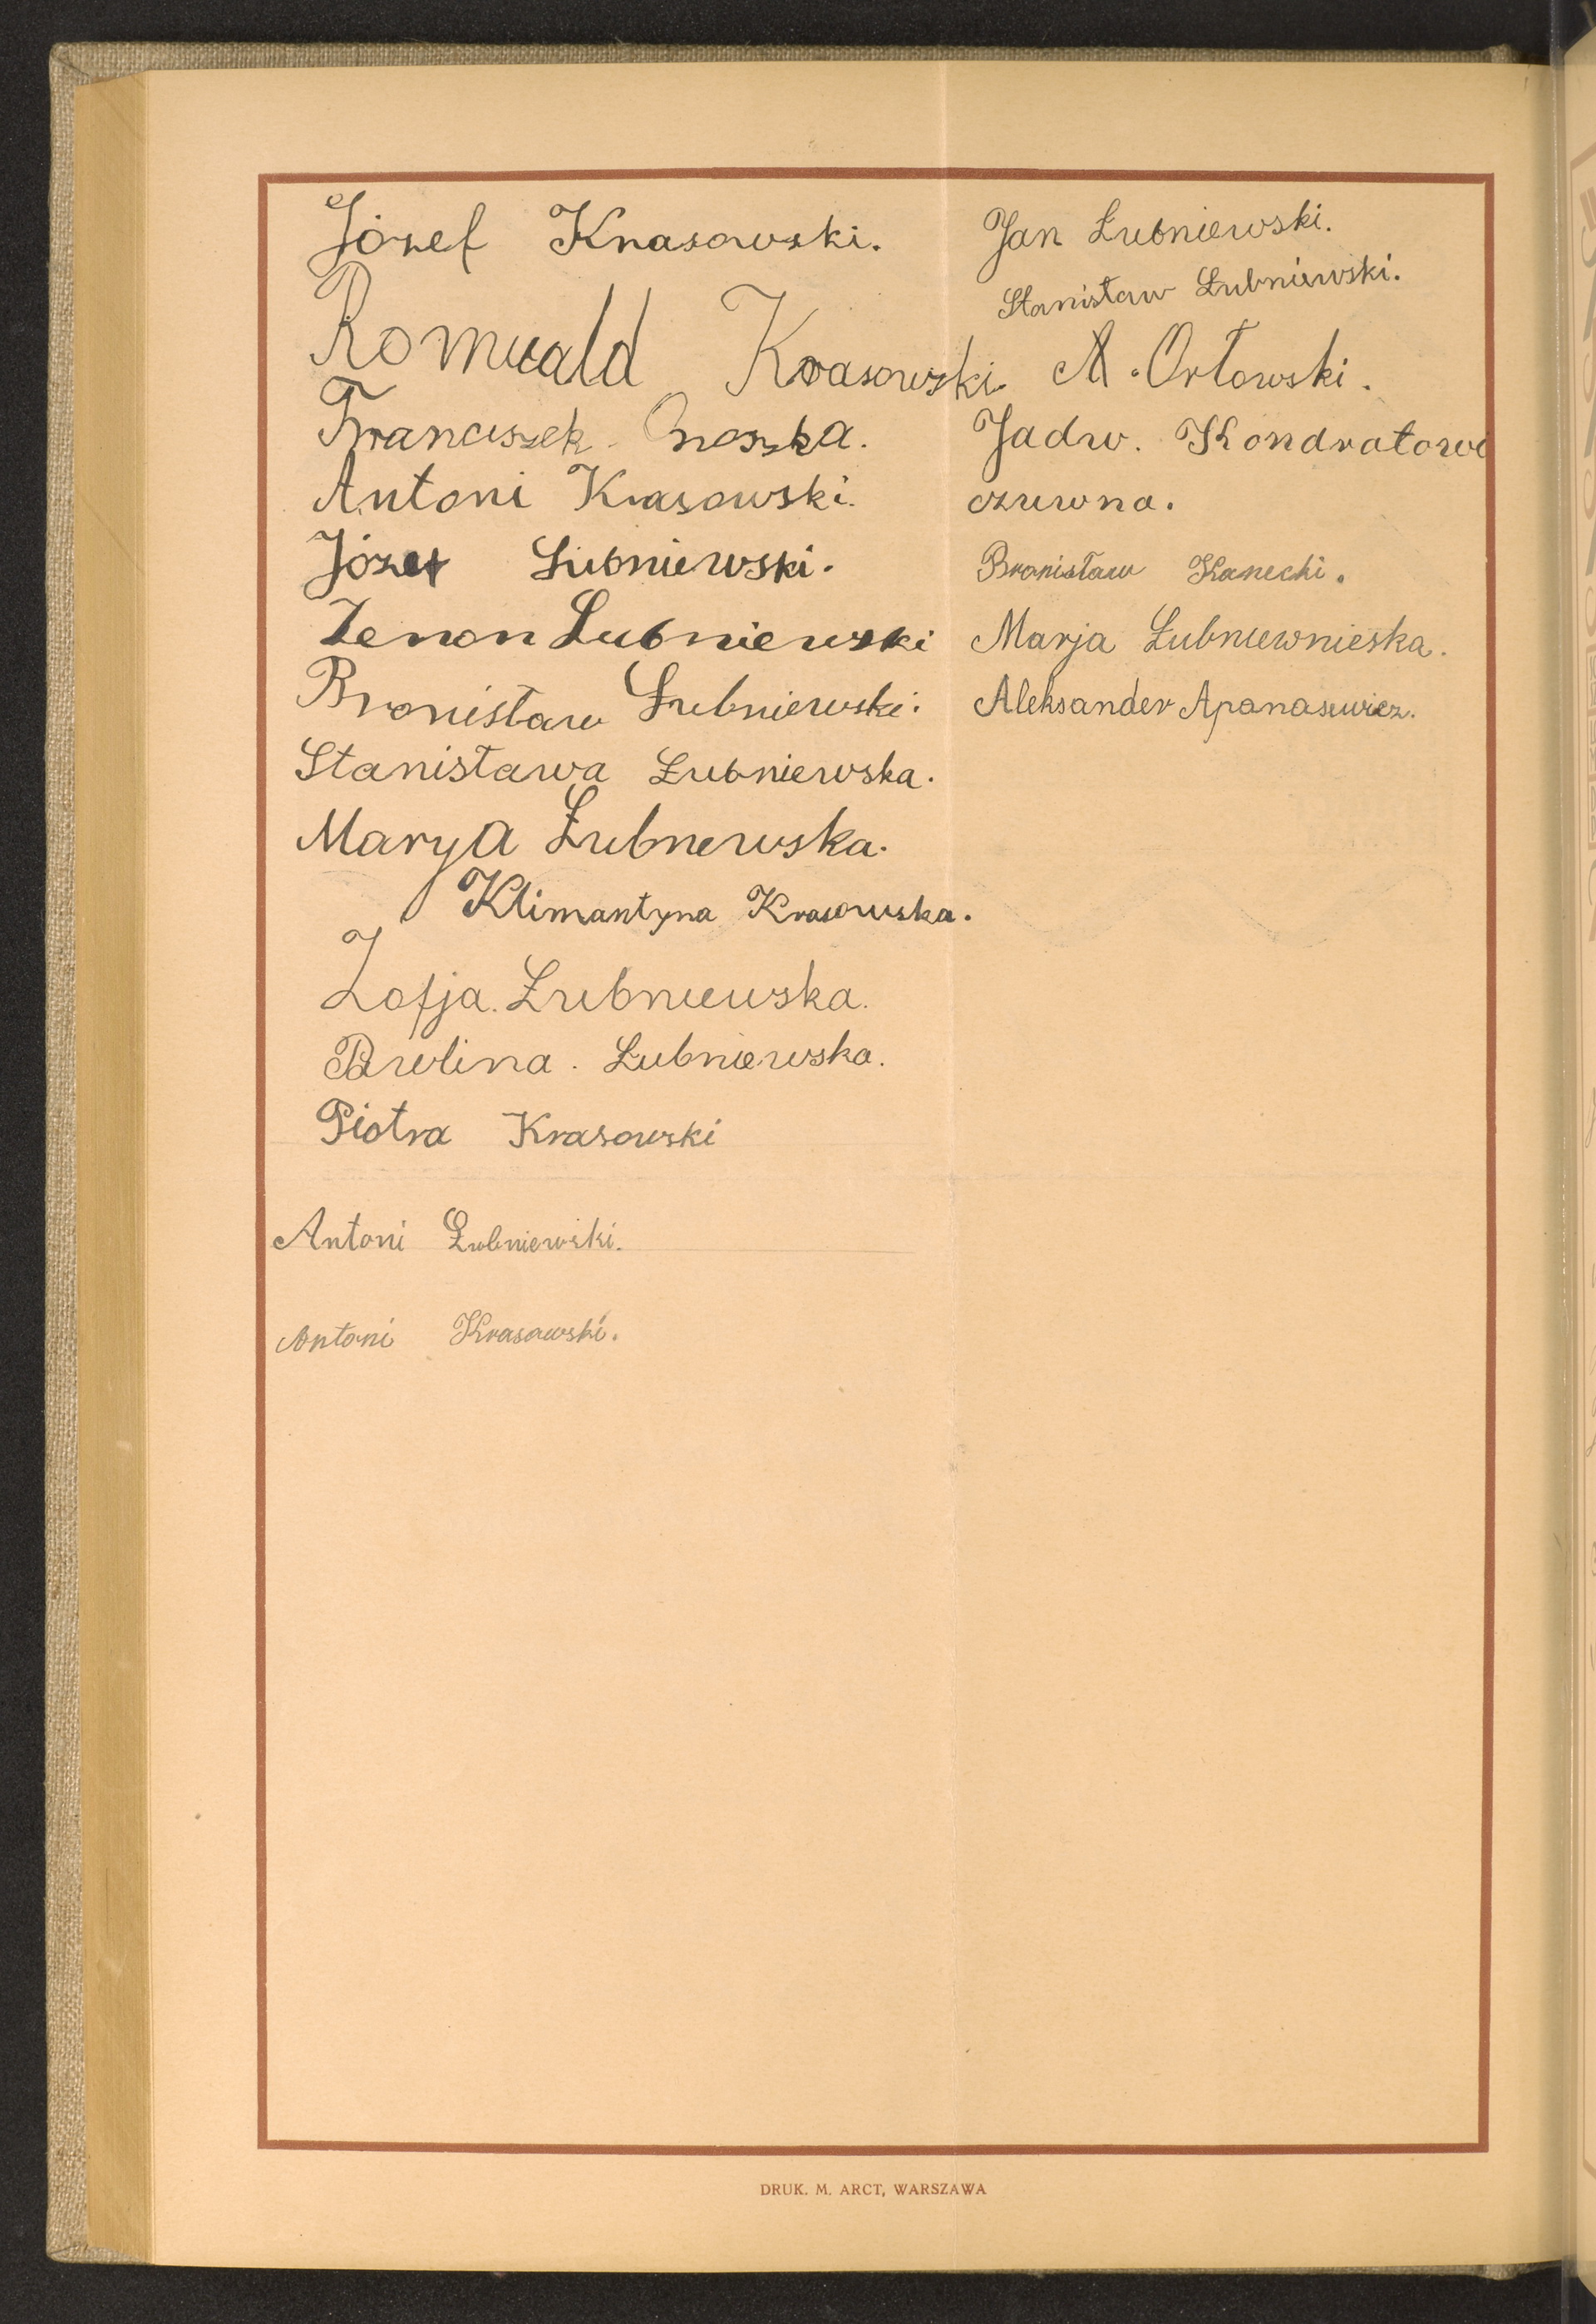 Józef Krasowski.
Romuald Krasowski.
Franciszek Onoszka.
Antoni Krasowski.
Józef Łubniewski.
Zenon Łubniewski
Bronisław Łubniewski.
Stanisława Łubniewska.
Marya Łubnewska.
Klimantyna Krasowska.
Zofja. Łubniewska.
Pawlina. Łubniewska.
Piotra Krasowski
Antoni Łubniewski.
Antoni Krasowski.
Jan Łubniewski.
Stanisław Łubniewski.
A. Orłowski.
Jadw. Kondratowi
czuwna.
Bronisław Kanecki.
Marja Łubniewnieska.
Aleksander Apanasewicz.
DRUK. M. ARCT, WARSZAWA